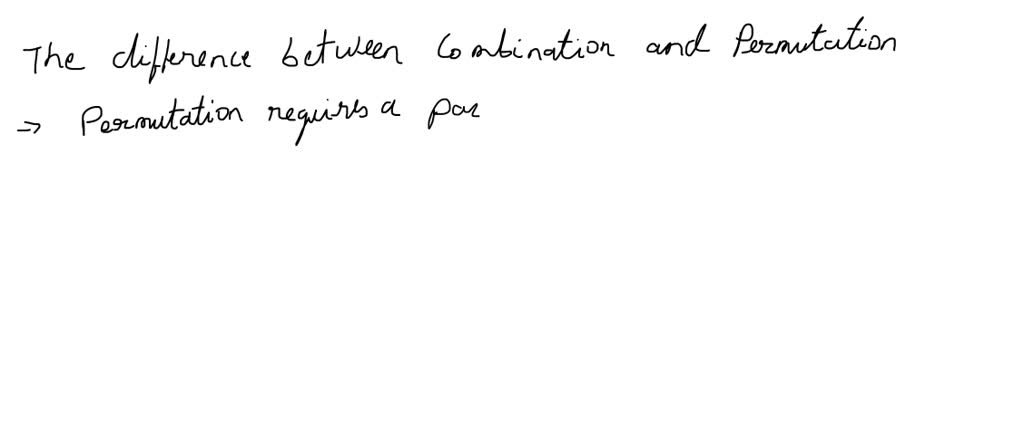 The difference between Combination and Permutation
⇒ Permutation requires a par